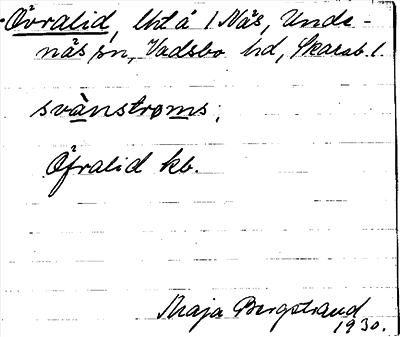 Övralid, Utå / Näs, Unde-
näs sn, Vadsbo hd, Skarab. l.
svànstrøms,
Öfralid kb.
Maja Bergstrand
1930.